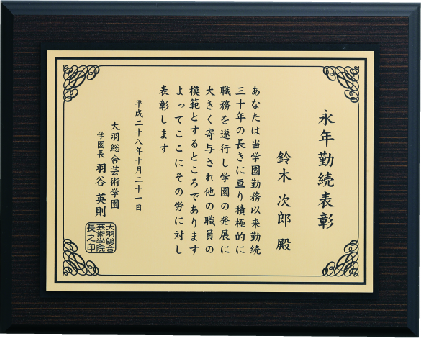 永年勤続表彰
鈴木 次郎 殿
あなたは当学園勤務以来勤続
三十年の長きに亘り積極的に
職務を遂行し学園の発展に
大きく寄与され他の職員の
模範とするところであります
よってここにその労に対し
表彰します
平成二十八年十月二十一日
大羽総合芸術学園
学園長 羽谷 英則